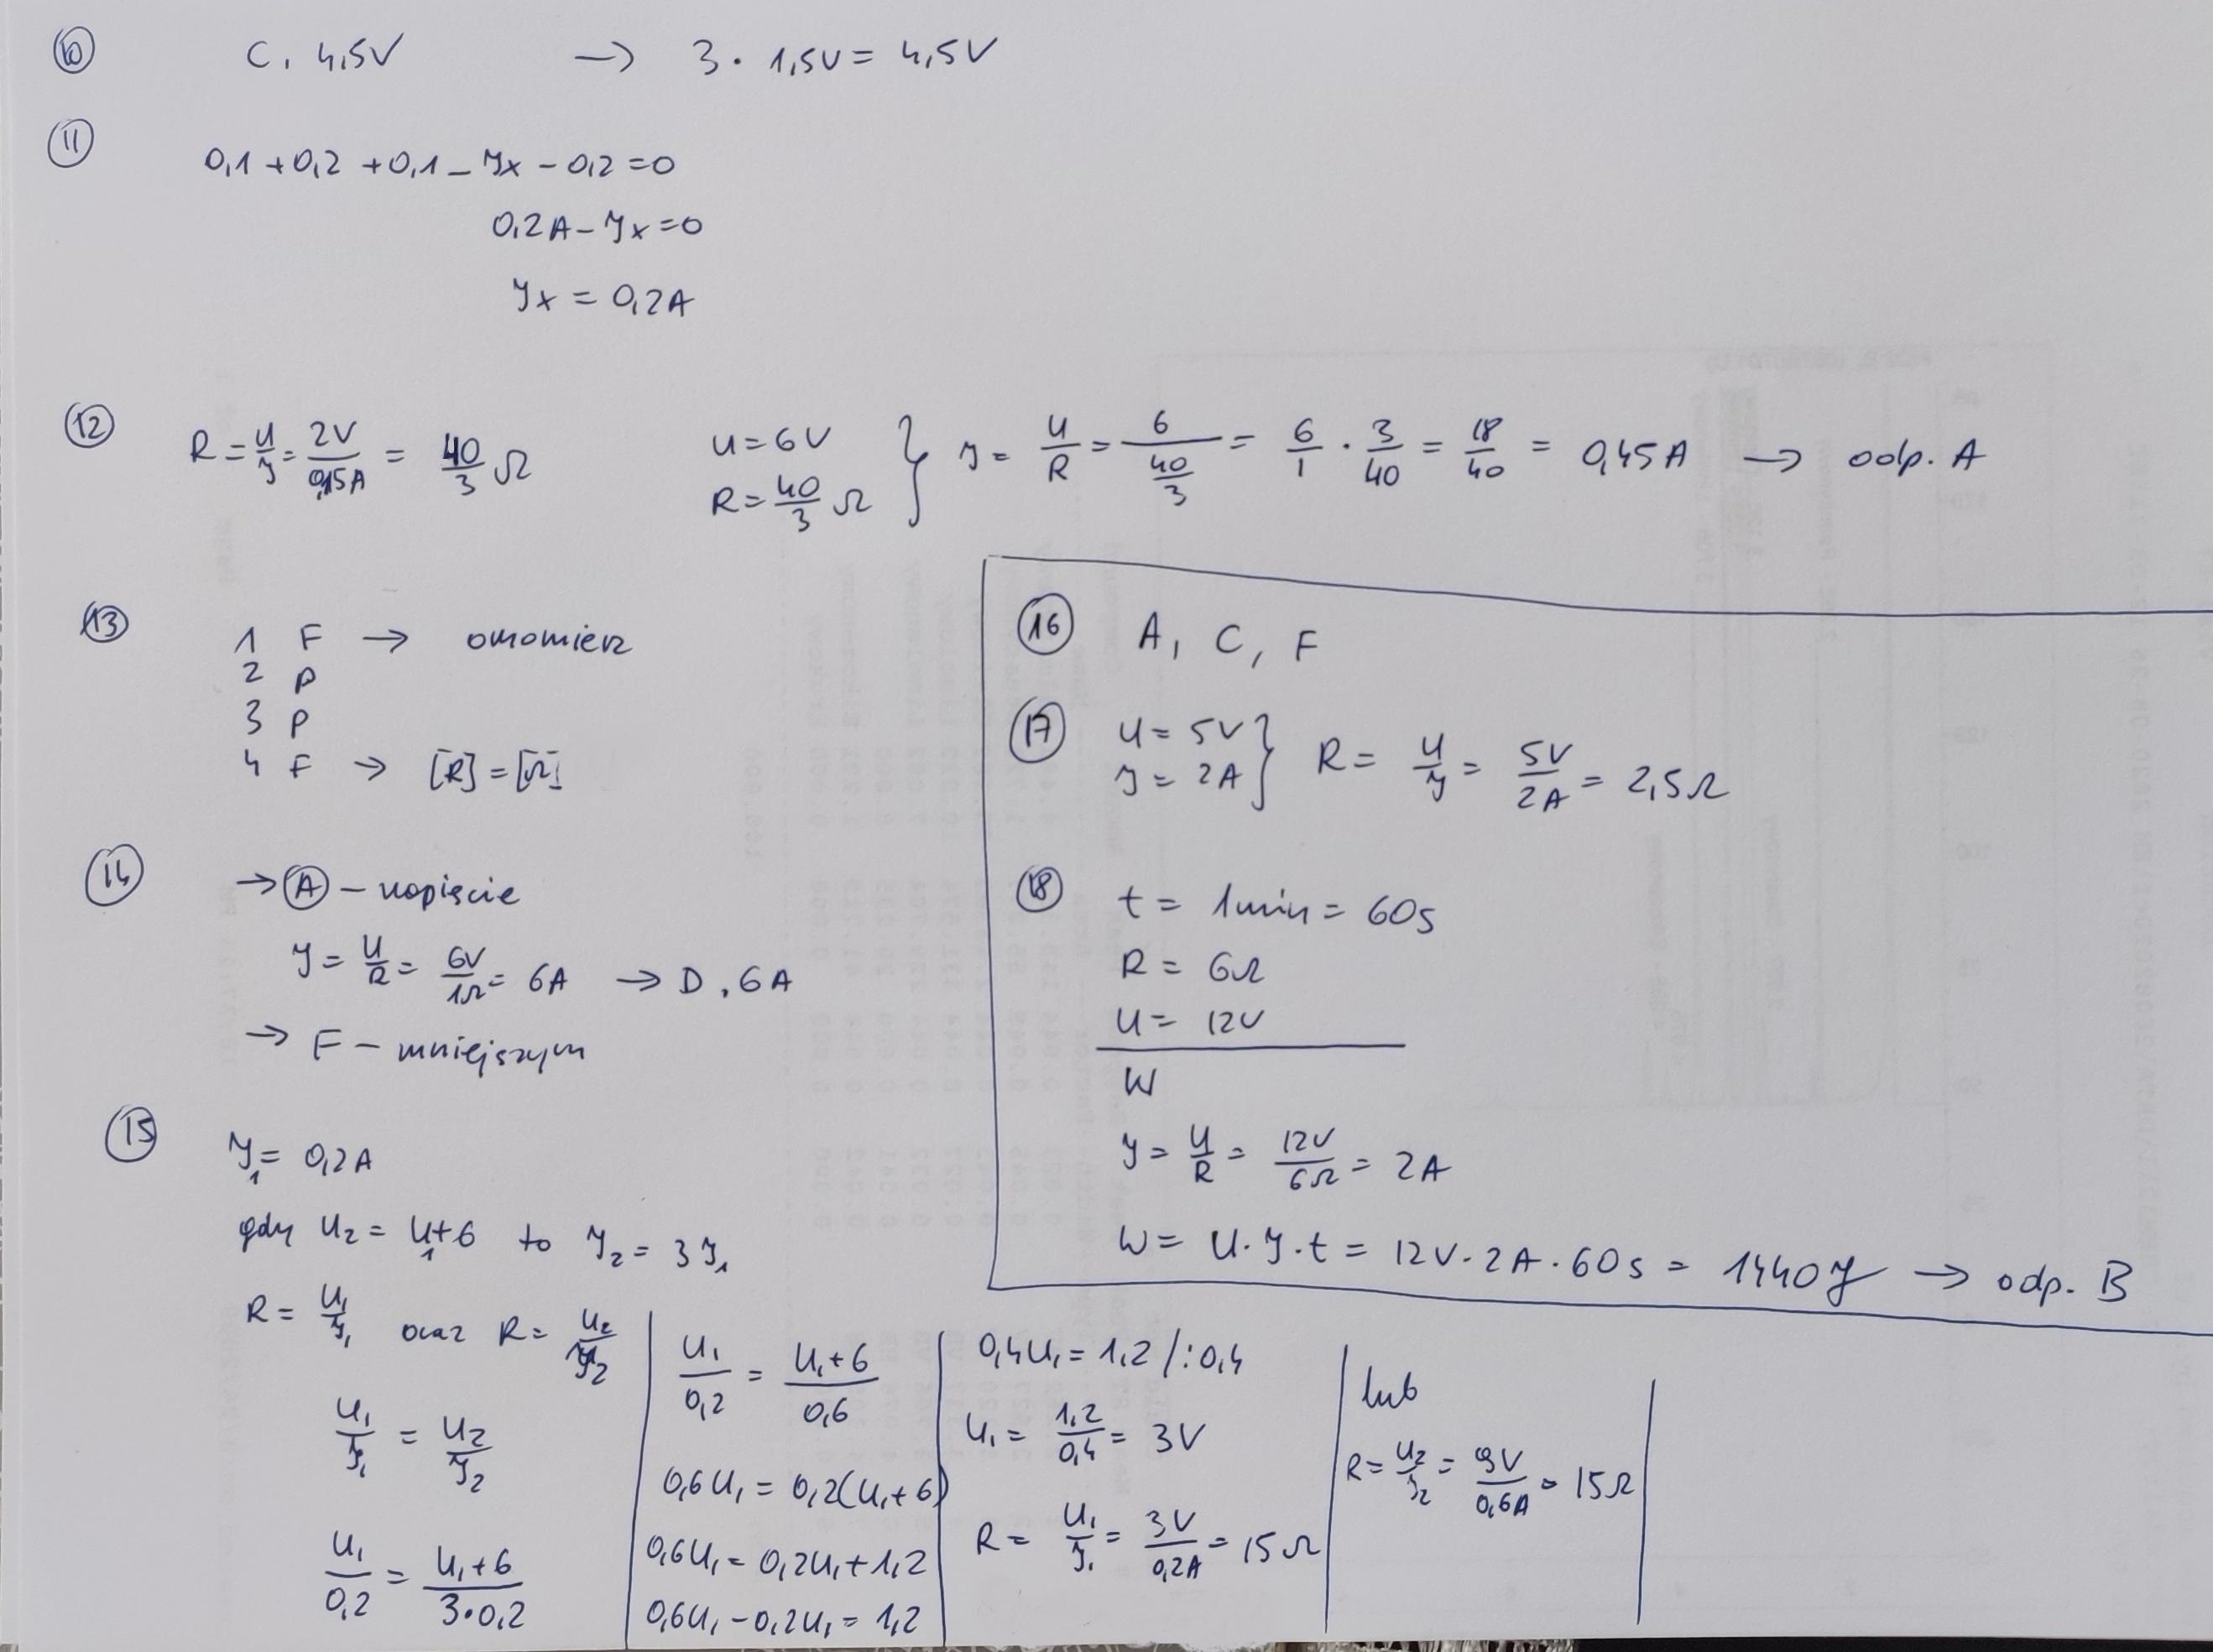 10 C. 4,5V → 3 · 1,5V = 4,5V
11
0,1 + 0,2 + 0,1 - Ix - 0,2 = 0
0,2A - Ix = 0
Ix = 0,2A
12 R = U/I = 2V/0,15A = 40/3 Ω
U = 6V
R = 40/3 Ω
} I = U/R = 6/(40/3) = 6/1 · 3/40 = 18/40 = 0,45A → odp. A
13
1 F → omomierz
2 P
3 P
4 F → [R] = [Ω]
14 → A - napięcie
I = U/R = 6V/1Ω = 6A → D. 6A
→ F - mniejszym
15
I₁ = 0,2A
gdy U₂ = U₁ + 6 to I₂ = 3I₁
R = U₁/I₁ oraz R = U₂/I₂
U₁/I₁ = U₂/I₂
U₁/0,2 = (U₁+6)/(3·0,2)
U₁/0,2 = (U₁+6)/0,6
0,6U₁ = 0,2(U₁+6)
0,6U₁ = 0,2U₁ + 1,2
0,6U₁ - 0,2U₁ = 1,2
0,4U₁ = 1,2 /:0,4
U₁ = 1,2/0,4 = 3V
R = U₁/I₁ = 3V/0,2A = 15Ω
lub
R = U₂/I₂ = 9V/0,6A = 15Ω
16 A, C, F
17 U = 5V
I = 2A
} R = U/I = 5V/2A = 2,5Ω
18 t = 1min = 60s
R = 6Ω
U = 12V
W
I = U/R = 12V/6Ω = 2A
W = U·I·t = 12V·2A·60s = 1440J → odp. B